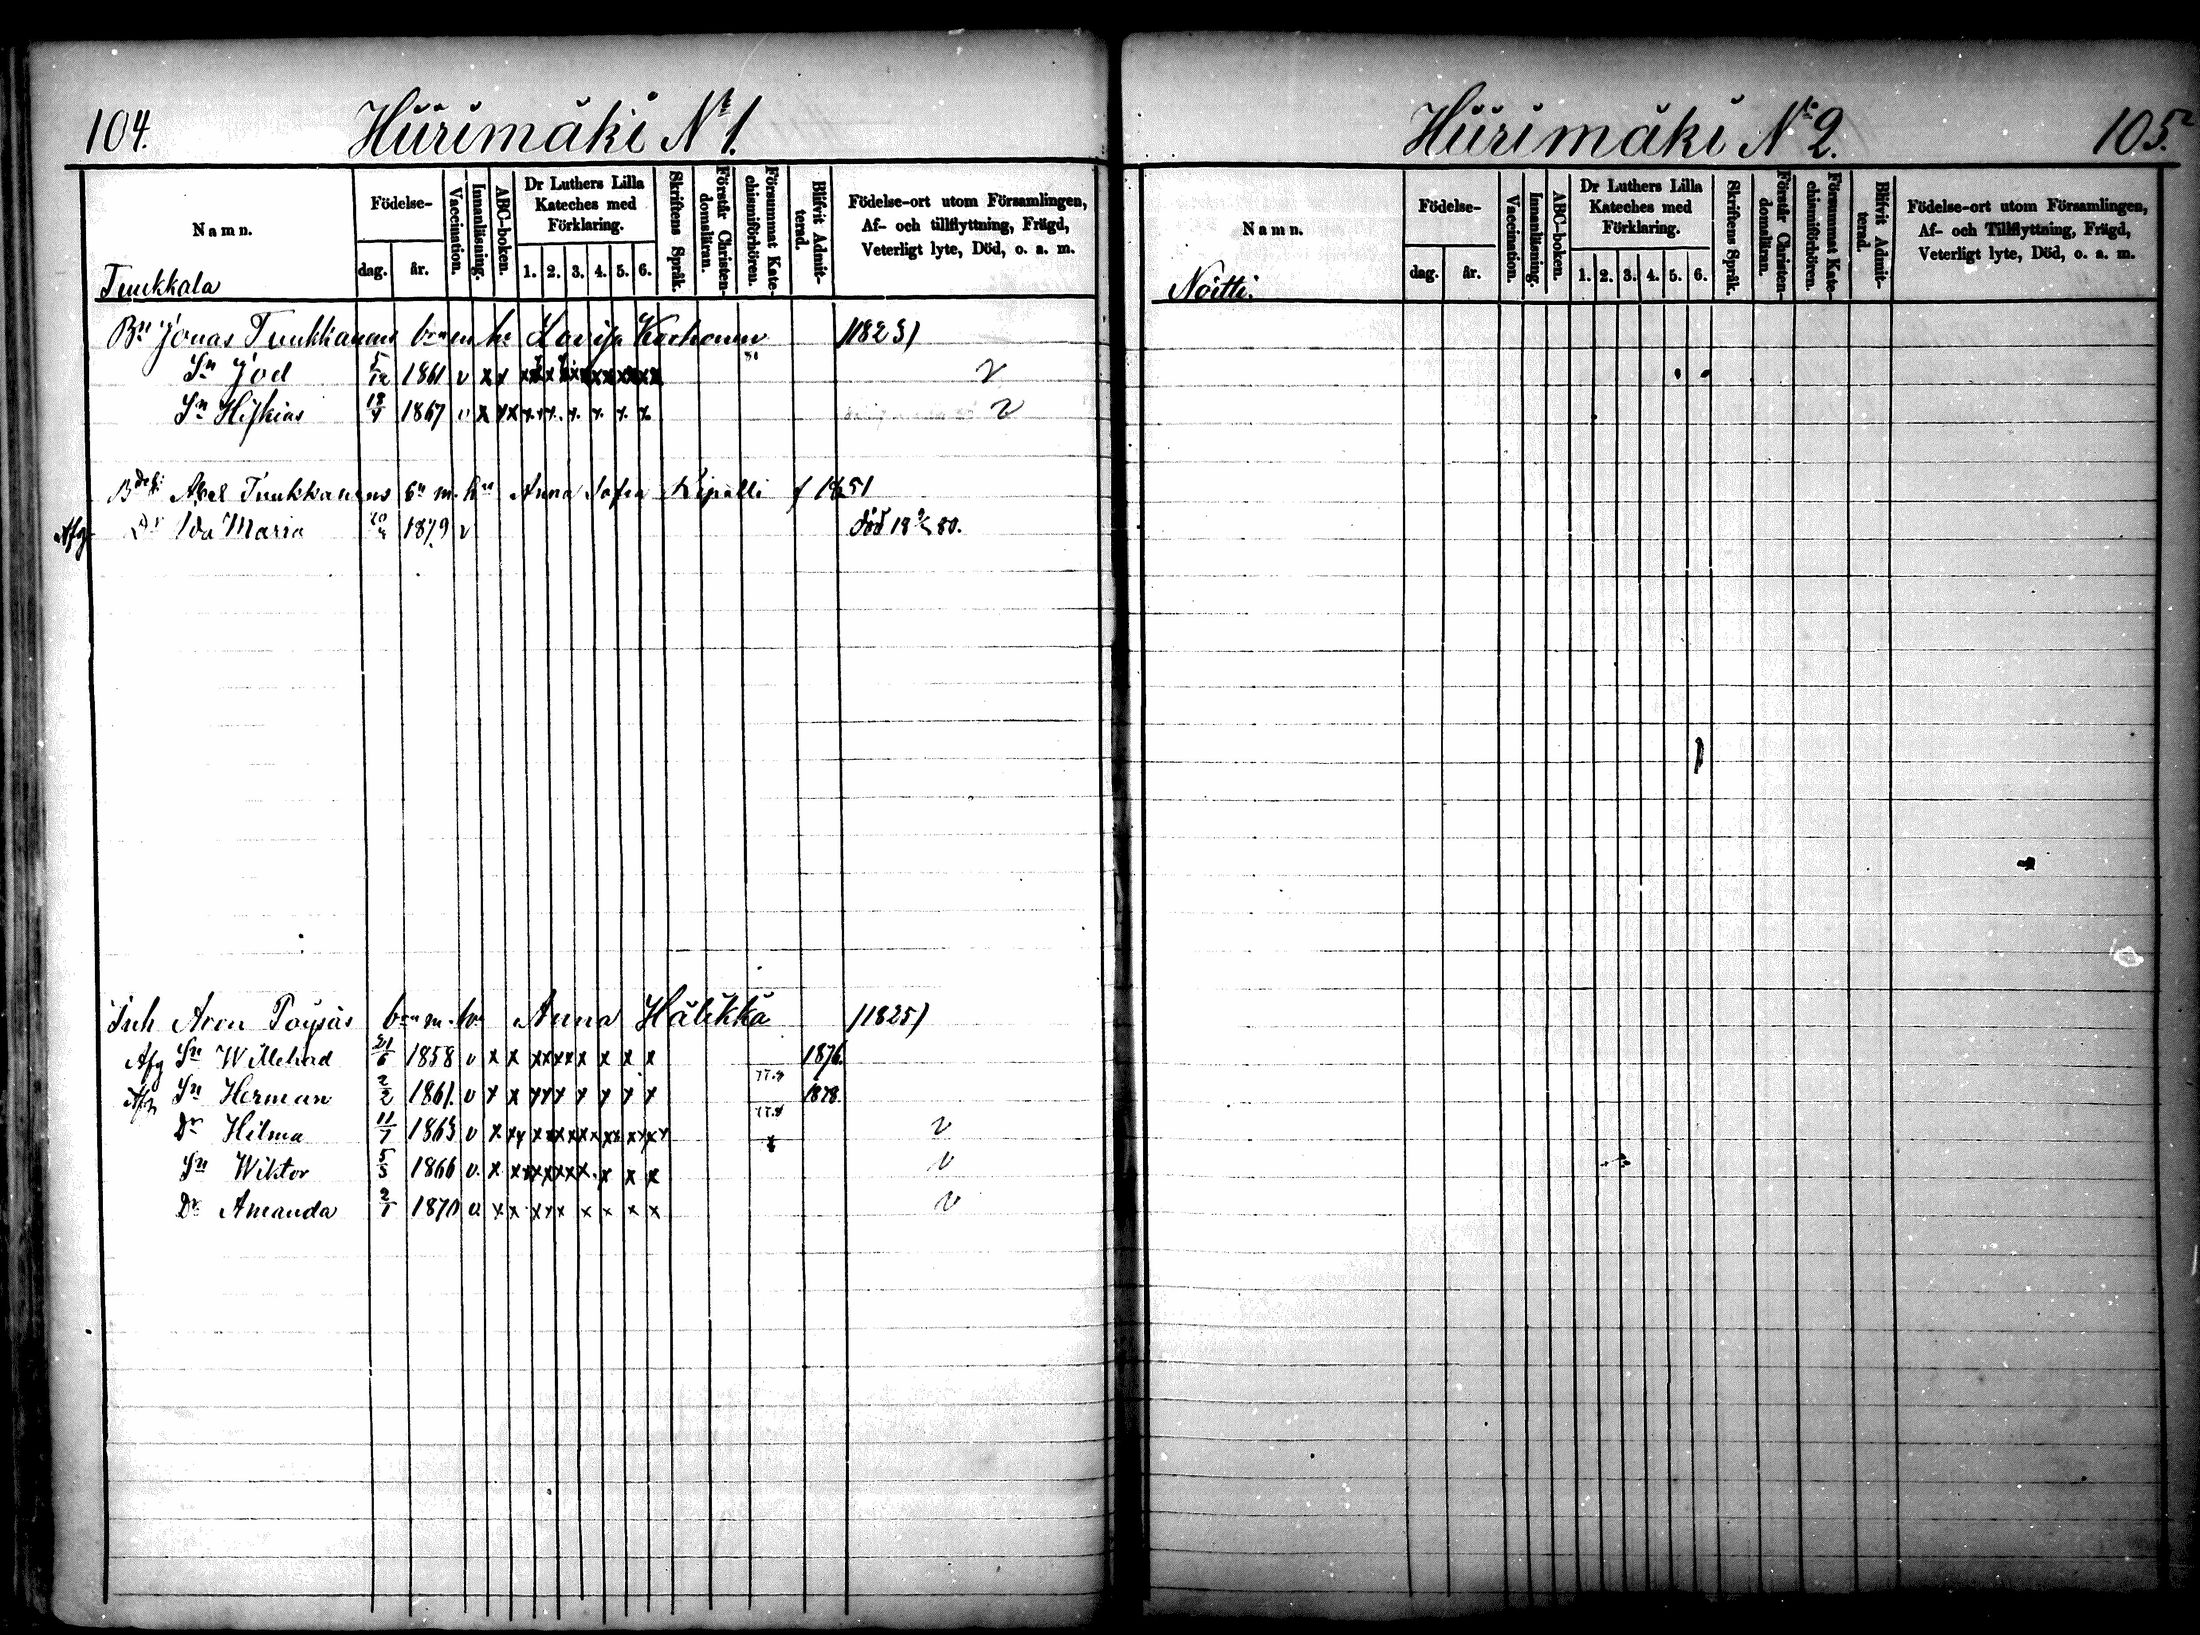 104. Hiirimäki No 1.
Namn. Födelse- dag. år. Vaccination. Innanläsning. ABC-boken. Dr Luthers Lilla Kateches med Förklaring. 1. 2. 3. 4. 5. 6. Skriftens Språk. Förstår Christendomsläran. Försummat Katechismiförhören. Blifvit Admitterad. Födelse-ort utom Församlingen, Af- och tillflyttning, Frägd, Veterligt lyte, Död, o. a. m.
Tuukkala
Bn Jonas Tuukkanens bnn m. h. Lovisa Korhonen /1823/
Sn Joel 5/12 1861 v x x
Sn Hiskias 18/4 1867 v x x x x x x x x x
Axel Tuukkanens bn m. hu Anna Sofia f 1851
Afg Dr Ida Maria 1879 v död 18 80.
Inh Aron Pöysäs bnn m. hu Anna Hälikkä /1825/
Afg Sn Willehad 31/5 1858 v x x x x x x x x x x 1876.
77.8
Afg Sn Herman 2/2 1861. v x x x x x x x x x 1878.
77.8
Dr Hilma 11/7 1863 v x x x x x x x x x x x v
Sn Wiktor 5/3 1866 v. x x x x x x x x x x x v
Dr Amanda 2/1 1870 v. x x x x x x x x x v
Hiirimäki No 2. 105.
Namn. Födelse- dag. år. Vaccination. Innanläsning. ABC-boken. Dr Luthers Lilla Kateches med Förklaring. 1. 2. 3. 4. 5. 6. Skriftens Språk. Förstår Christendomsläran. Försummat Katechismiförhören. Blifvit Admitterad. Födelse-ort utom Församlingen, Af- och Tillflyttning, Frägd, Veterligt lyte, Död, o. a. m.
Noitti.